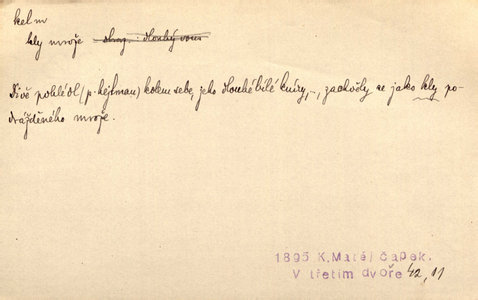 kel m
kly mrože
Divě pohlédl (p. hejtman) kolem sebe, jeho dlouhé bílé kníry, –, zachvěly se jako kly po-
drážděného mrože.
1895 K. Matěj Čapek.
V třetím dvoře 42, 11